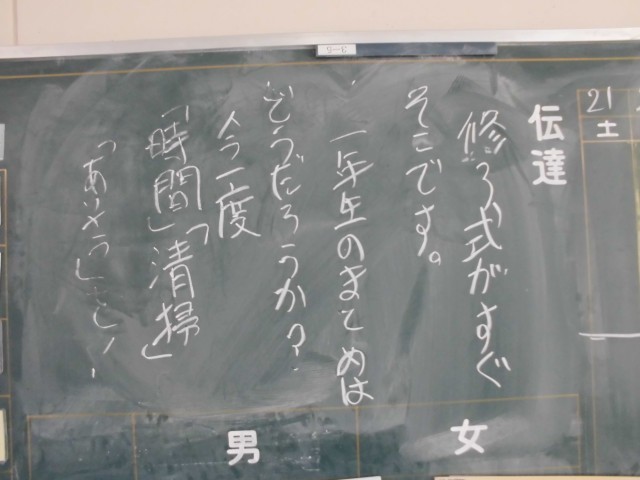 21
土
伝達
修了式がすぐ
そこです。
一年生のまとめは
どうだろうか?
今一度
「時間」「清掃」
「あいさつ」を!
女
男